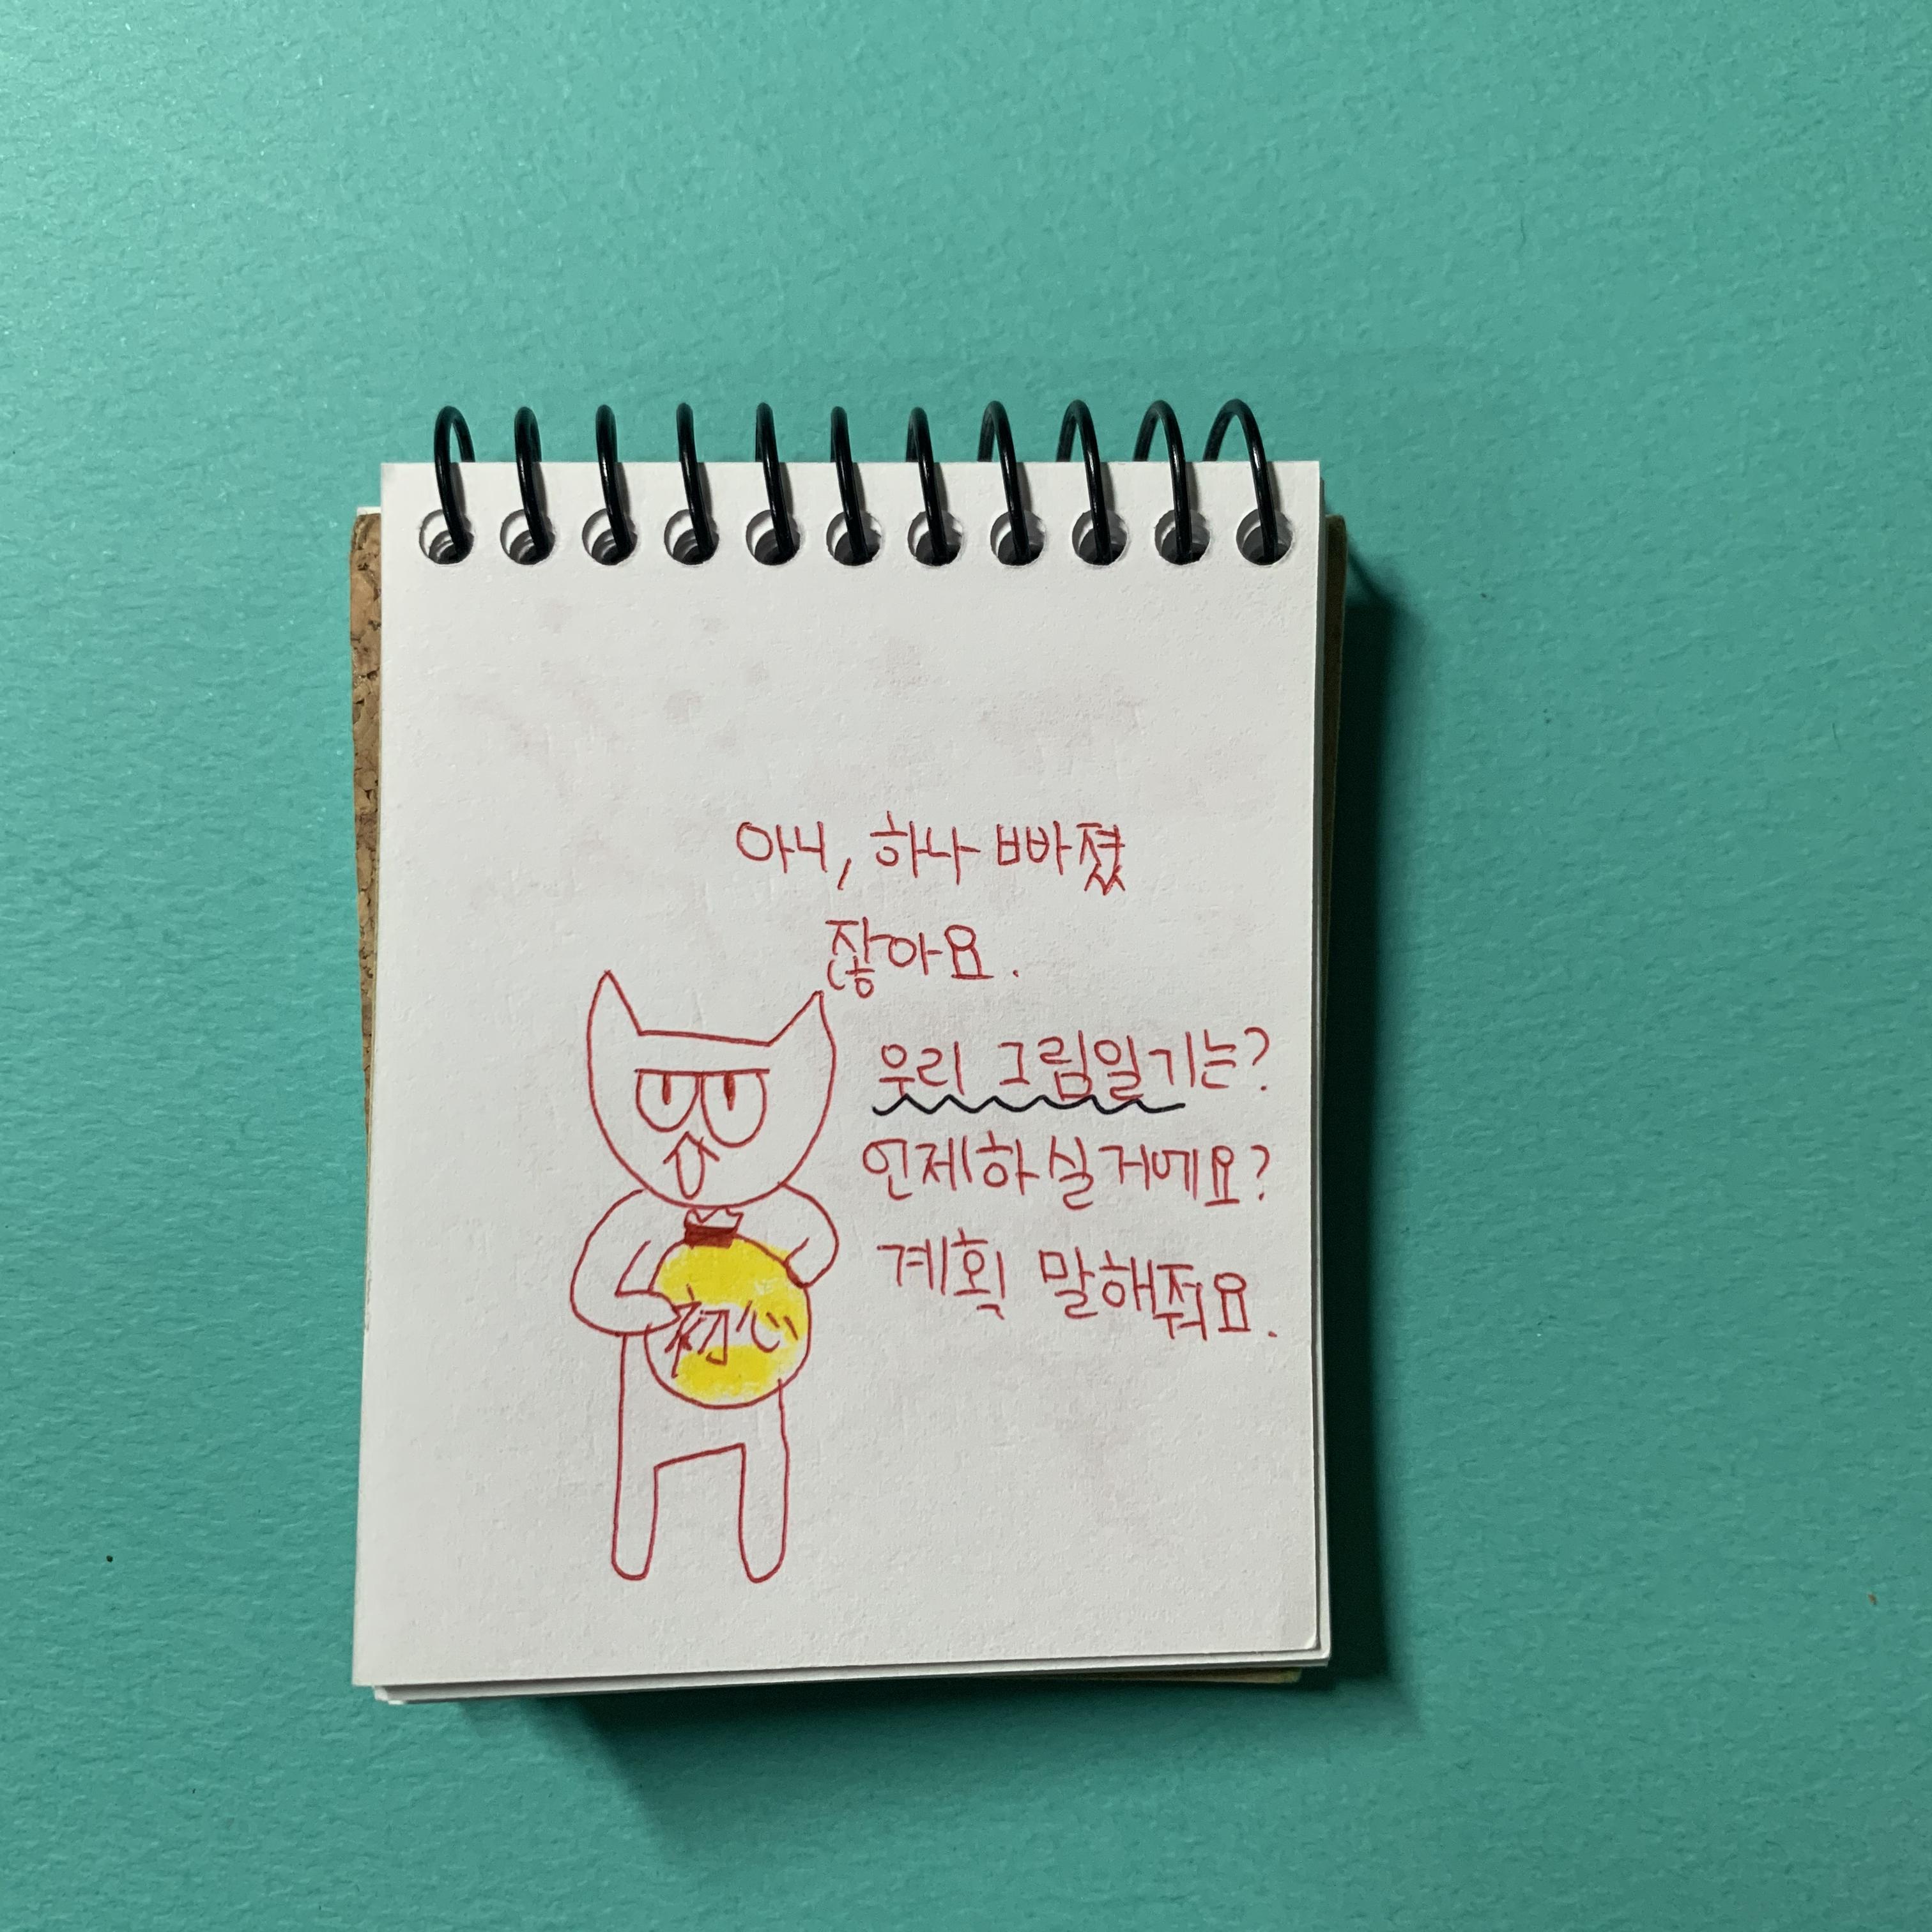 아니, 하나 빠졌
잖아요.
우리 그림일기는?
언제하실거에요?
계획 말해줘요.
初心